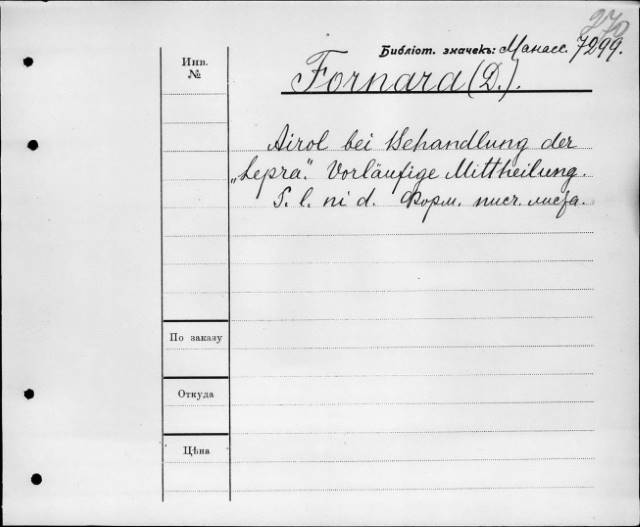 270
Библіот. значекъ: Манасс. 7299.
Инв.
№
Fornara (D.).
Airol bei Behandlung der
„Lepra“. Vorläufige Mittheilung.
S. l. ni d. Форм. писч. листа.
По заказу
Откуда
Цѣна